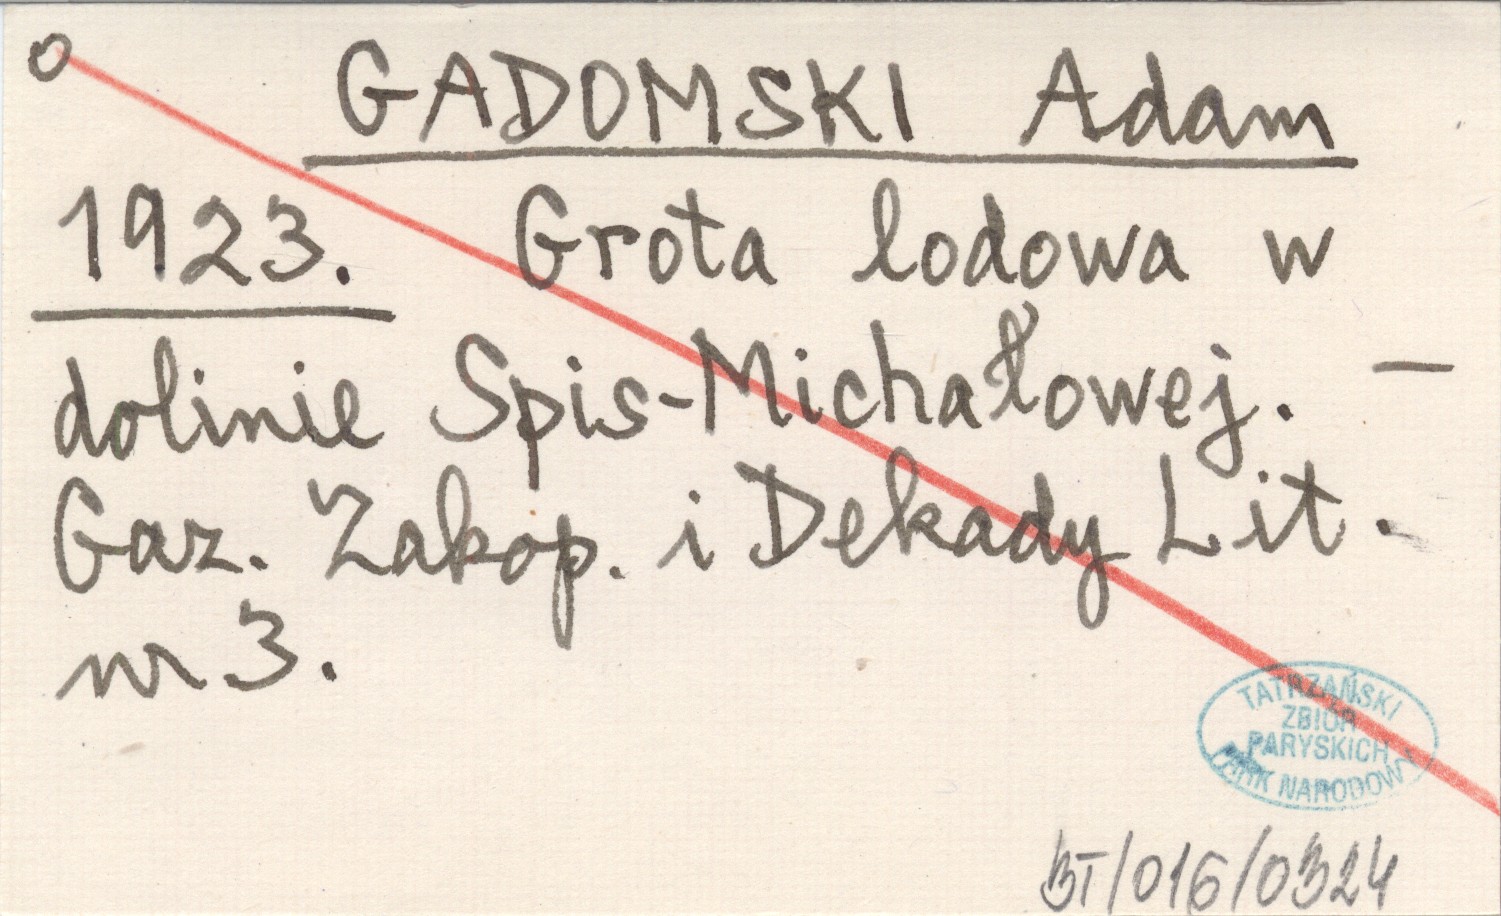 GADOMSKI Adam
1923. Grota lodowa w
dolinie Spis-Michałowej. —
Gaz. Zakop. i Dekady Lit.
nr 3.
TATRZAŃSKI
ZBIÓR
PARYSKICH
PARK NARODOWY
BT/016/0324